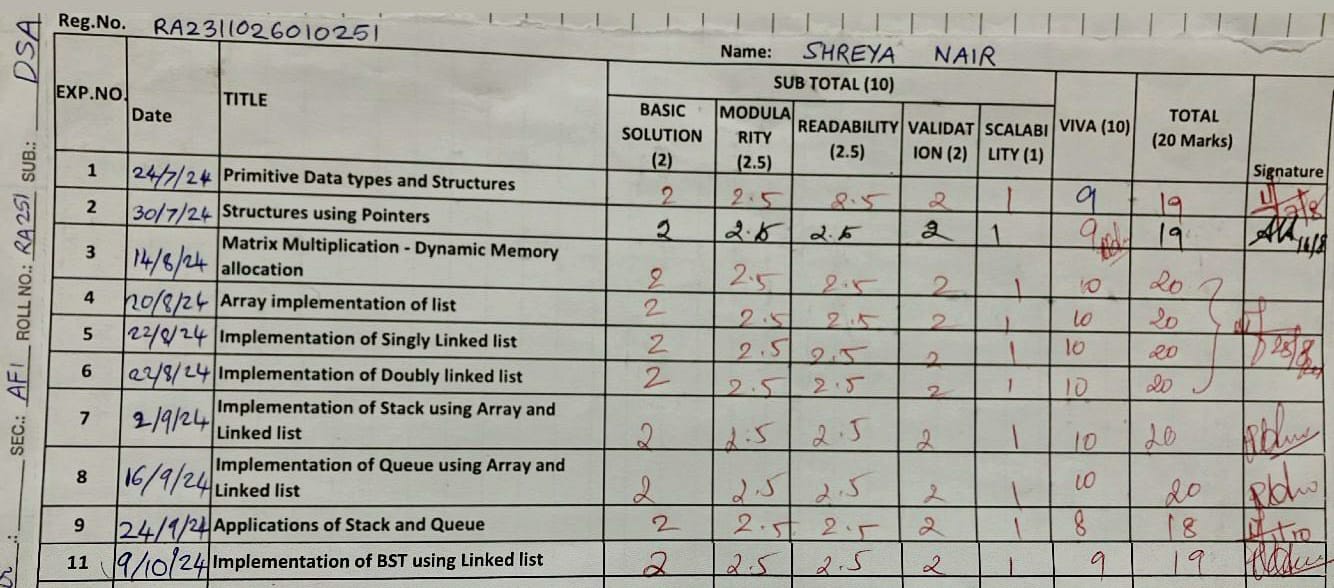 Reg.No. RA2311026010251
Name: SHREYA NAIR
SEC.: AF1 ROLL NO.: RA251 SUB.: DSA
EXP.NO. Date TITLE SUB TOTAL (10) VIVA (10) TOTAL (20 Marks) Signature
BASIC SOLUTION (2) MODULARITY (2.5) READABILITY (2.5) VALIDATION (2) SCALABILITY (1)
1 24/7/24 Primitive Data types and Structures 2 2.5 2.5 2 1 9 19
2 30/7/24 Structures using Pointers 2 2.5 2.5 2 1 9 19
3 14/8/24 Matrix Multiplication - Dynamic Memory
allocation 2 2.5 2.5 2 1 10 20
4 20/8/24 Array implementation of list 2 2.5 2.5 2 1 10 20
5 22/8/24 Implementation of Singly Linked list 2 2.5 2.5 2 1 10 20
6 22/8/24 Implementation of Doubly linked list 2 2.5 2.5 2 1 10 20
7 2/9/24 Implementation of Stack using Array and
Linked list 2 2.5 2.5 2 1 10 20
8 16/9/24 Implementation of Queue using Array and
Linked list 2 2.5 2.5 2 1 10 20
9 24/9/24 Applications of Stack and Queue 2 2.5 2.5 2 1 8 18
11 9/10/24 Implementation of BST using Linked list 2 2.5 2.5 2 1 9 19